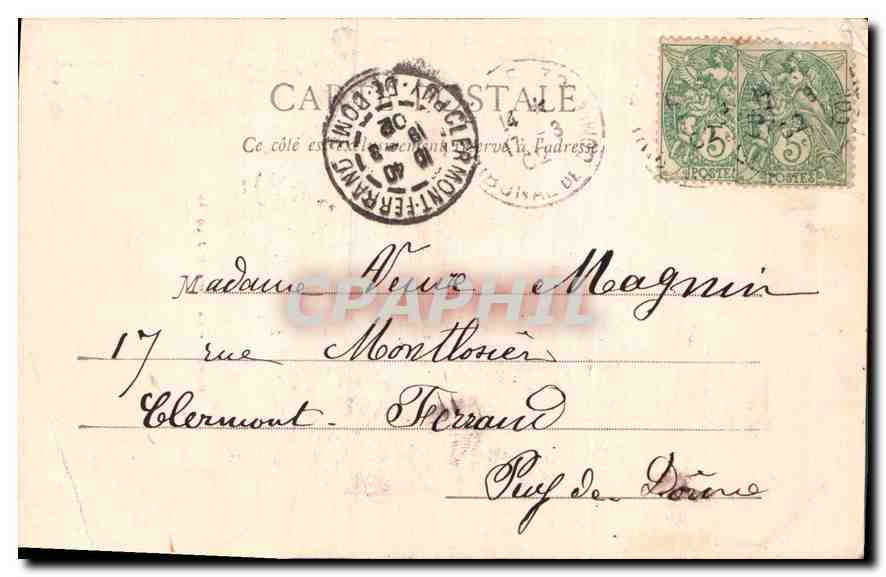 CARTE POSTALE
Ce côté est exclusivement réservé à l'adresse
CLERMONT-FERRAND
PUY-DE-DOME
5c 5c
POSTES POSTES
Madame Veuve Magnin
CPAPHIL
17 rue Montlosier
Clermont-Ferrand
Puy de Dôme